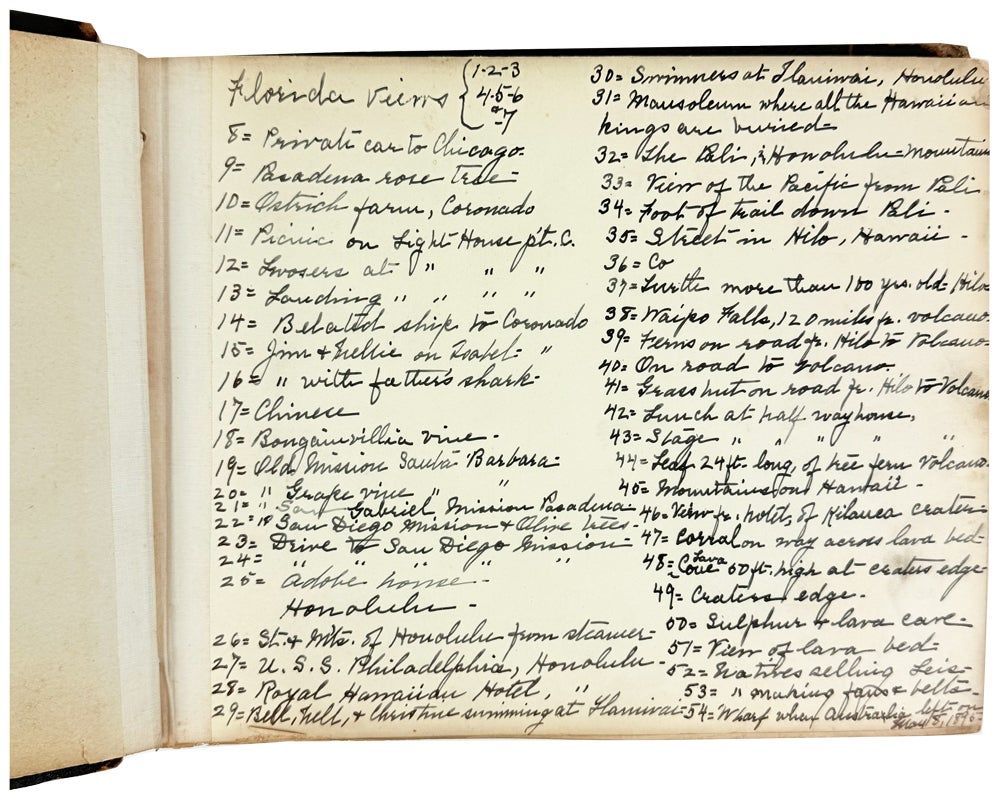 Florida Views { 1-2-3
4-5-6
& -7
8= Private car to Chicago-
9= Pasadena rose tree-
10= Ostrich farm, Coronado
11= Picnic on Light House pt. C.
12= Loosers at " " "
13= Landing " " " "
14= Belated ship to Coronado
15= Jim & Nellie on Isabel- "
16= " with father's shark-
17= Chinese
18= Bongainvillia vine-
19= Old Mission Santa Barbara-
20= " Grape vine " "
21= " San Gabriel Mission Pasadena
22= " San Diego Mission & Olive trees-
23= Drive to San Diego Mission-
24= " " " "
25= Adobe house-
Honolulu-
26= St. & Mts. of Honolulu from steamer-
27= U.S.S. Philadelphia, Honolulu-
28= Royal Hawaiian Hotel, "
29= Bell, Nell, & Christine swimming at Haniwai-
30= Swimmers at Haniwai, Honolulu
31= Mausoleum where all the Hawaiian
kings are buried-
32= The Pali, Honolulu-Mountain
33= View of the Pacific from Pali
34= Foot of trail down Pali-
35= Street in Hilo, Hawaii-
36= Co
37= Turtle more than 100 yrs. old- Hilo
38= Waipo Falls, 120 miles fr. volcano-
39= Ferns on road fr. Hilo to Volcano-
40= On road to Volcano-
41= Grass hut on road fr. Hilo to Volcano
42= Lunch at half way house,
43= Stage " " " " "
44= Leaf 24 ft. long, of tree fern Volcano-
45= Mountains on Hawaii-
46= View fr. hotel, of Kilauea crater-
47= Corral on way across lava bed-
48= Lava Cone 50 ft. high at craters edge-
49= Craters edge-
50= Sulphur & lava cave-
51= View of lava bed-
52= Natives selling Leis-
53= " making fans & belts-
54= Wharf when Australia left on
May 8, 1895-